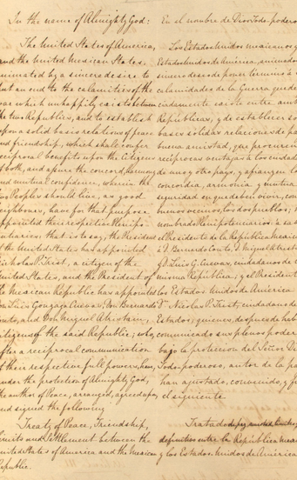 In the name of Almighty God:
The United States of America,
and the United Mexican States,
animated by a sincere desire to
put an end to the calamities of the
war which unhappily exists between
the two Republics, and to establish
upon a solid basis relations of peace
and friendship, which shall confer
reciprocal benefits upon the citizens
of both, and assure the concord, harmony
and mutual confidence, wherein the
two Peoples should live, as good
neighbours, have for that purpose
appointed their respective Plenipo-
tentiaries: that is to say, the President
of the United States has appointed
Nicholas P. Trist, a citizen of the
United States, and the President of
the Mexican Republic has appointed
Don Luis Gonzaga Cuevas, Don Bernardo
Couto, and Don Miguel Atristain,
citizens of the said Republic; who,
after a reciprocal communication
of their respective full powers, have,
under the protection of Almighty God,
the author of Peace, arranged, agreed upon,
and signed the following
Treaty of Peace, Friendship,
Limits and Settlement between the
United States of America and the Mexican
Republic.
En el nombre de Dios Todo-poderoso
Los Estados Unidos mexicanos y los
Estados Unidos de América, animados
sincero deseo de poner término a las
calamidades de la Guerra que
existe entre ambas
Repúblicas, y de establecer sobre
bases sólidas relaciones de paz y
buena amistad, que procuren
recíprocas ventajas á los ciudadanos
de uno y otro pays, y afianzen la
concordia, armonía y mutua
seguridad en que deben vivir, como
buenos vecinos, los dos pueblos; han
nombrado
El Presidente de la República Mexicana
á D. Bernardo Couto, D. Miguel Atristain
y D. Luis G. Cuevas, ciudadanos de la
misma República; y el Presidente
de los Estados Unidos de América
á D. Nicolas P. Trist, ciudadano de
Estados; quienes, despues de haberse
comunicado sus plenos poderes,
bajo la proteccion del Señor Dios
Todo-poderoso, autor de la paz,
han ajustado, convenido, y firmado
el siguiente
Tratado de paz, amistad, límites y arreglo
definitivo entre la República Mexicana
y los Estados Unidos de América